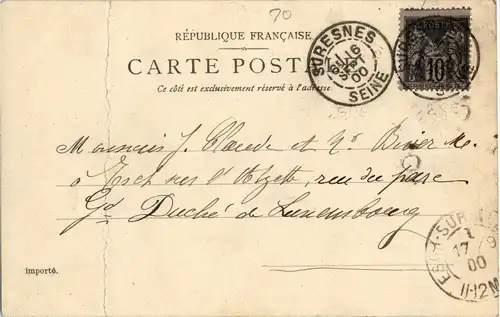 70
RÉPUBLIQUE FRANÇAISE
CARTE POSTA
Ce côté est exclusivement réservé à l'adresse
SURESNES
16
SEPT
00
SEINE
POSTE
10
Messieurs J. et
à Esch sur l'Alzette, rue du parc
Gd Duché de Luxembourg
importé.
ESCH-SUR-
17/9
00
11-12M